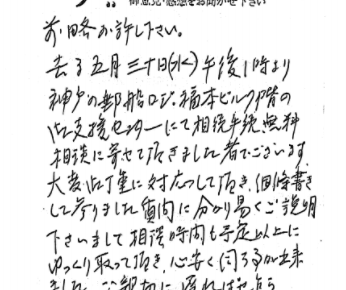 御意見・感想をお聞かせ下さい
前略お許し下さい。
去る五月三十日(水)午後1時より
神戸の郵船ロジ・福本ビル7階の
支援センターにて相続手続無料
相談に寄せて頂きました者でございます
大変丁重に対応して頂き、個條書き
して参りました質問に分かり易くご説明
下さいまして相談時間も予定以上に
ゆっくり取って頂き、心安く伺う事が出来
ました。ご親切に